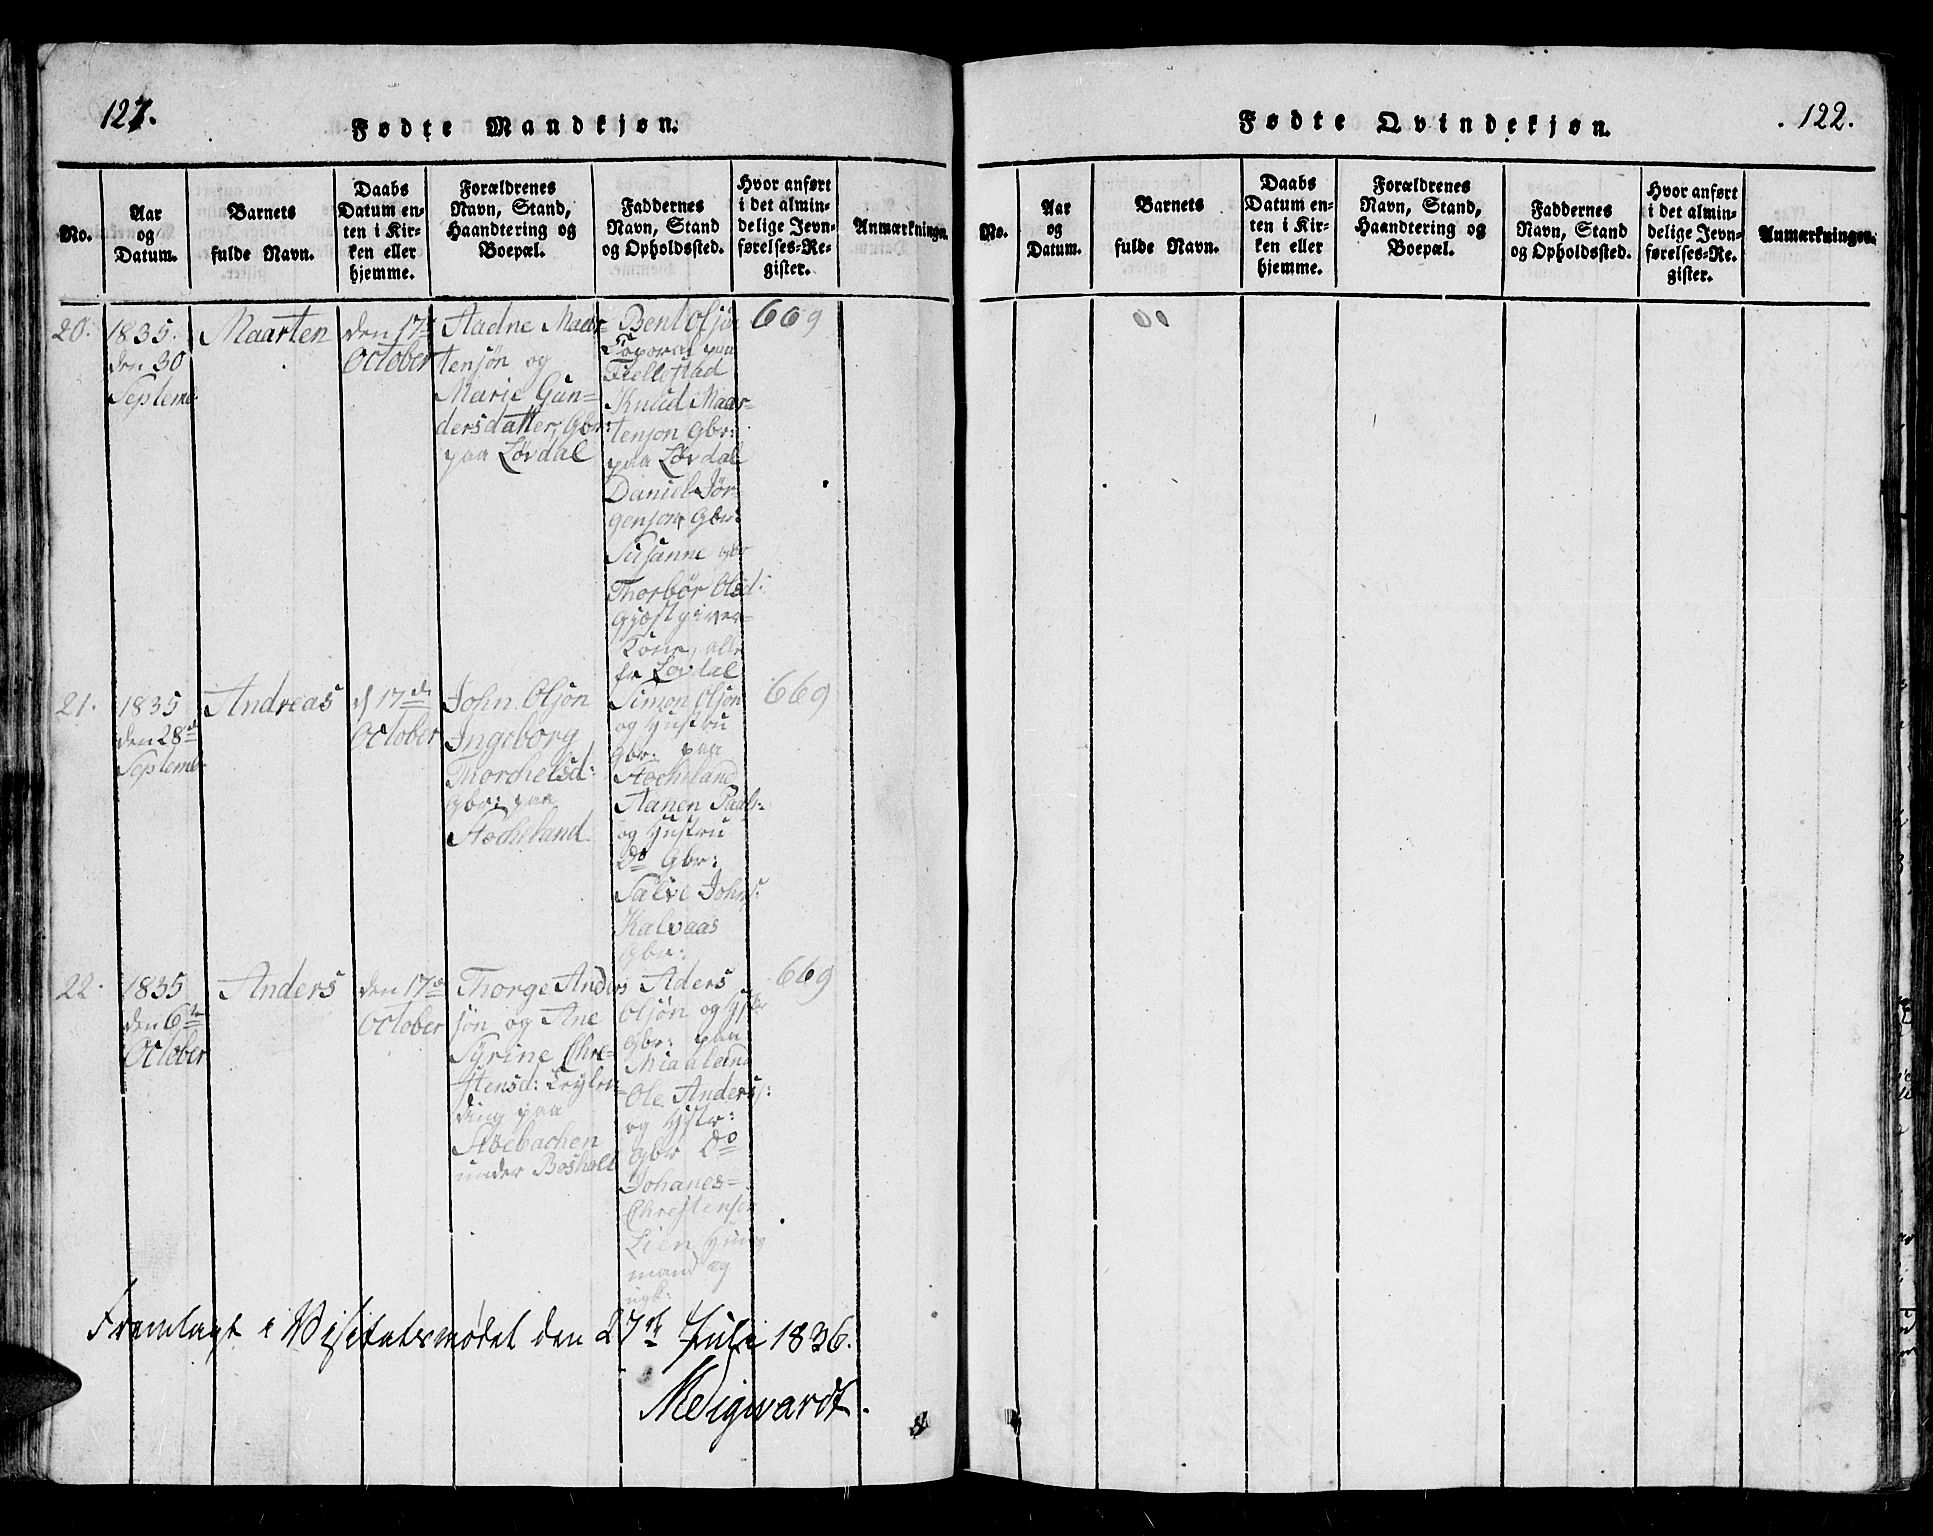 127.
Fødte Mandkjøn.
No.
Aar
og
Datum.
Barnets
fulde Navn.
Daabs
Datum en-
ten i Kir-
ken eller
hjemme.
Forældrenes
Navn, Stand,
Haandtering og
Boepæl.
Faddernes
Navn, Stand
og Opholdssted.
Hvor anført
i det almin-
delige Jevn-
førelses-Re-
gister.
Anmærkninger.
20.
1835.
den 30
Septemb.
Maarten
den 17de
October
Aadne Maar-
tensøn og
Marie Gun-
dersdatter, Gbr:
paa Løvdal
Bent Olsøn
paa
Fiellestad
Knud Maar-
tenson Gbr:
paa Løvdal
Daniel Jør-
genson, Gbr:
Susanne
Thorbør Olsd:
Gjæstgiver-
Kone, alle
fr Løvdal
669
21.
1835
den 28de
Septemb.
Andreas
d 17de
October
John Olsøn
Ingeborg
Thorchelsd:
Gbr: paa
Stocheland
Simon Olsøn
og Hustru
Gbr: paa
Stocheland
Aanen
og Hustru
Do Gbr:
Salve Johns:
Kalvaas
Gbr:
669
22.
1835
den 6te
October
Anders
den 17de
October
Thorge Anders
søn og Ane
Syrine Chre-
stensd:
paa
under Bosholt
Aders
Olsøn og
Gbr: paa
Ole Anders:
og Hstr:
Gbr Do
Johanes
Chrestenson
Lien
mand og
669
Fremlagt i Visitatsmødet den 27de Juli 1836.
122.
Fødte Qvindekjøn.
No.
Aar
og
Datum.
Barnets
fulde Navn.
Daabs
Datum en-
ten i Kir-
ken eller
hjemme.
Forældrenes
Navn, Stand,
Haandtering og
Boepæl.
Faddernes
Navn, Stand
og Opholdssted.
Hvor anført
i det almin-
delige Jevn-
førelses-Re-
gister.
Anmærkninger.